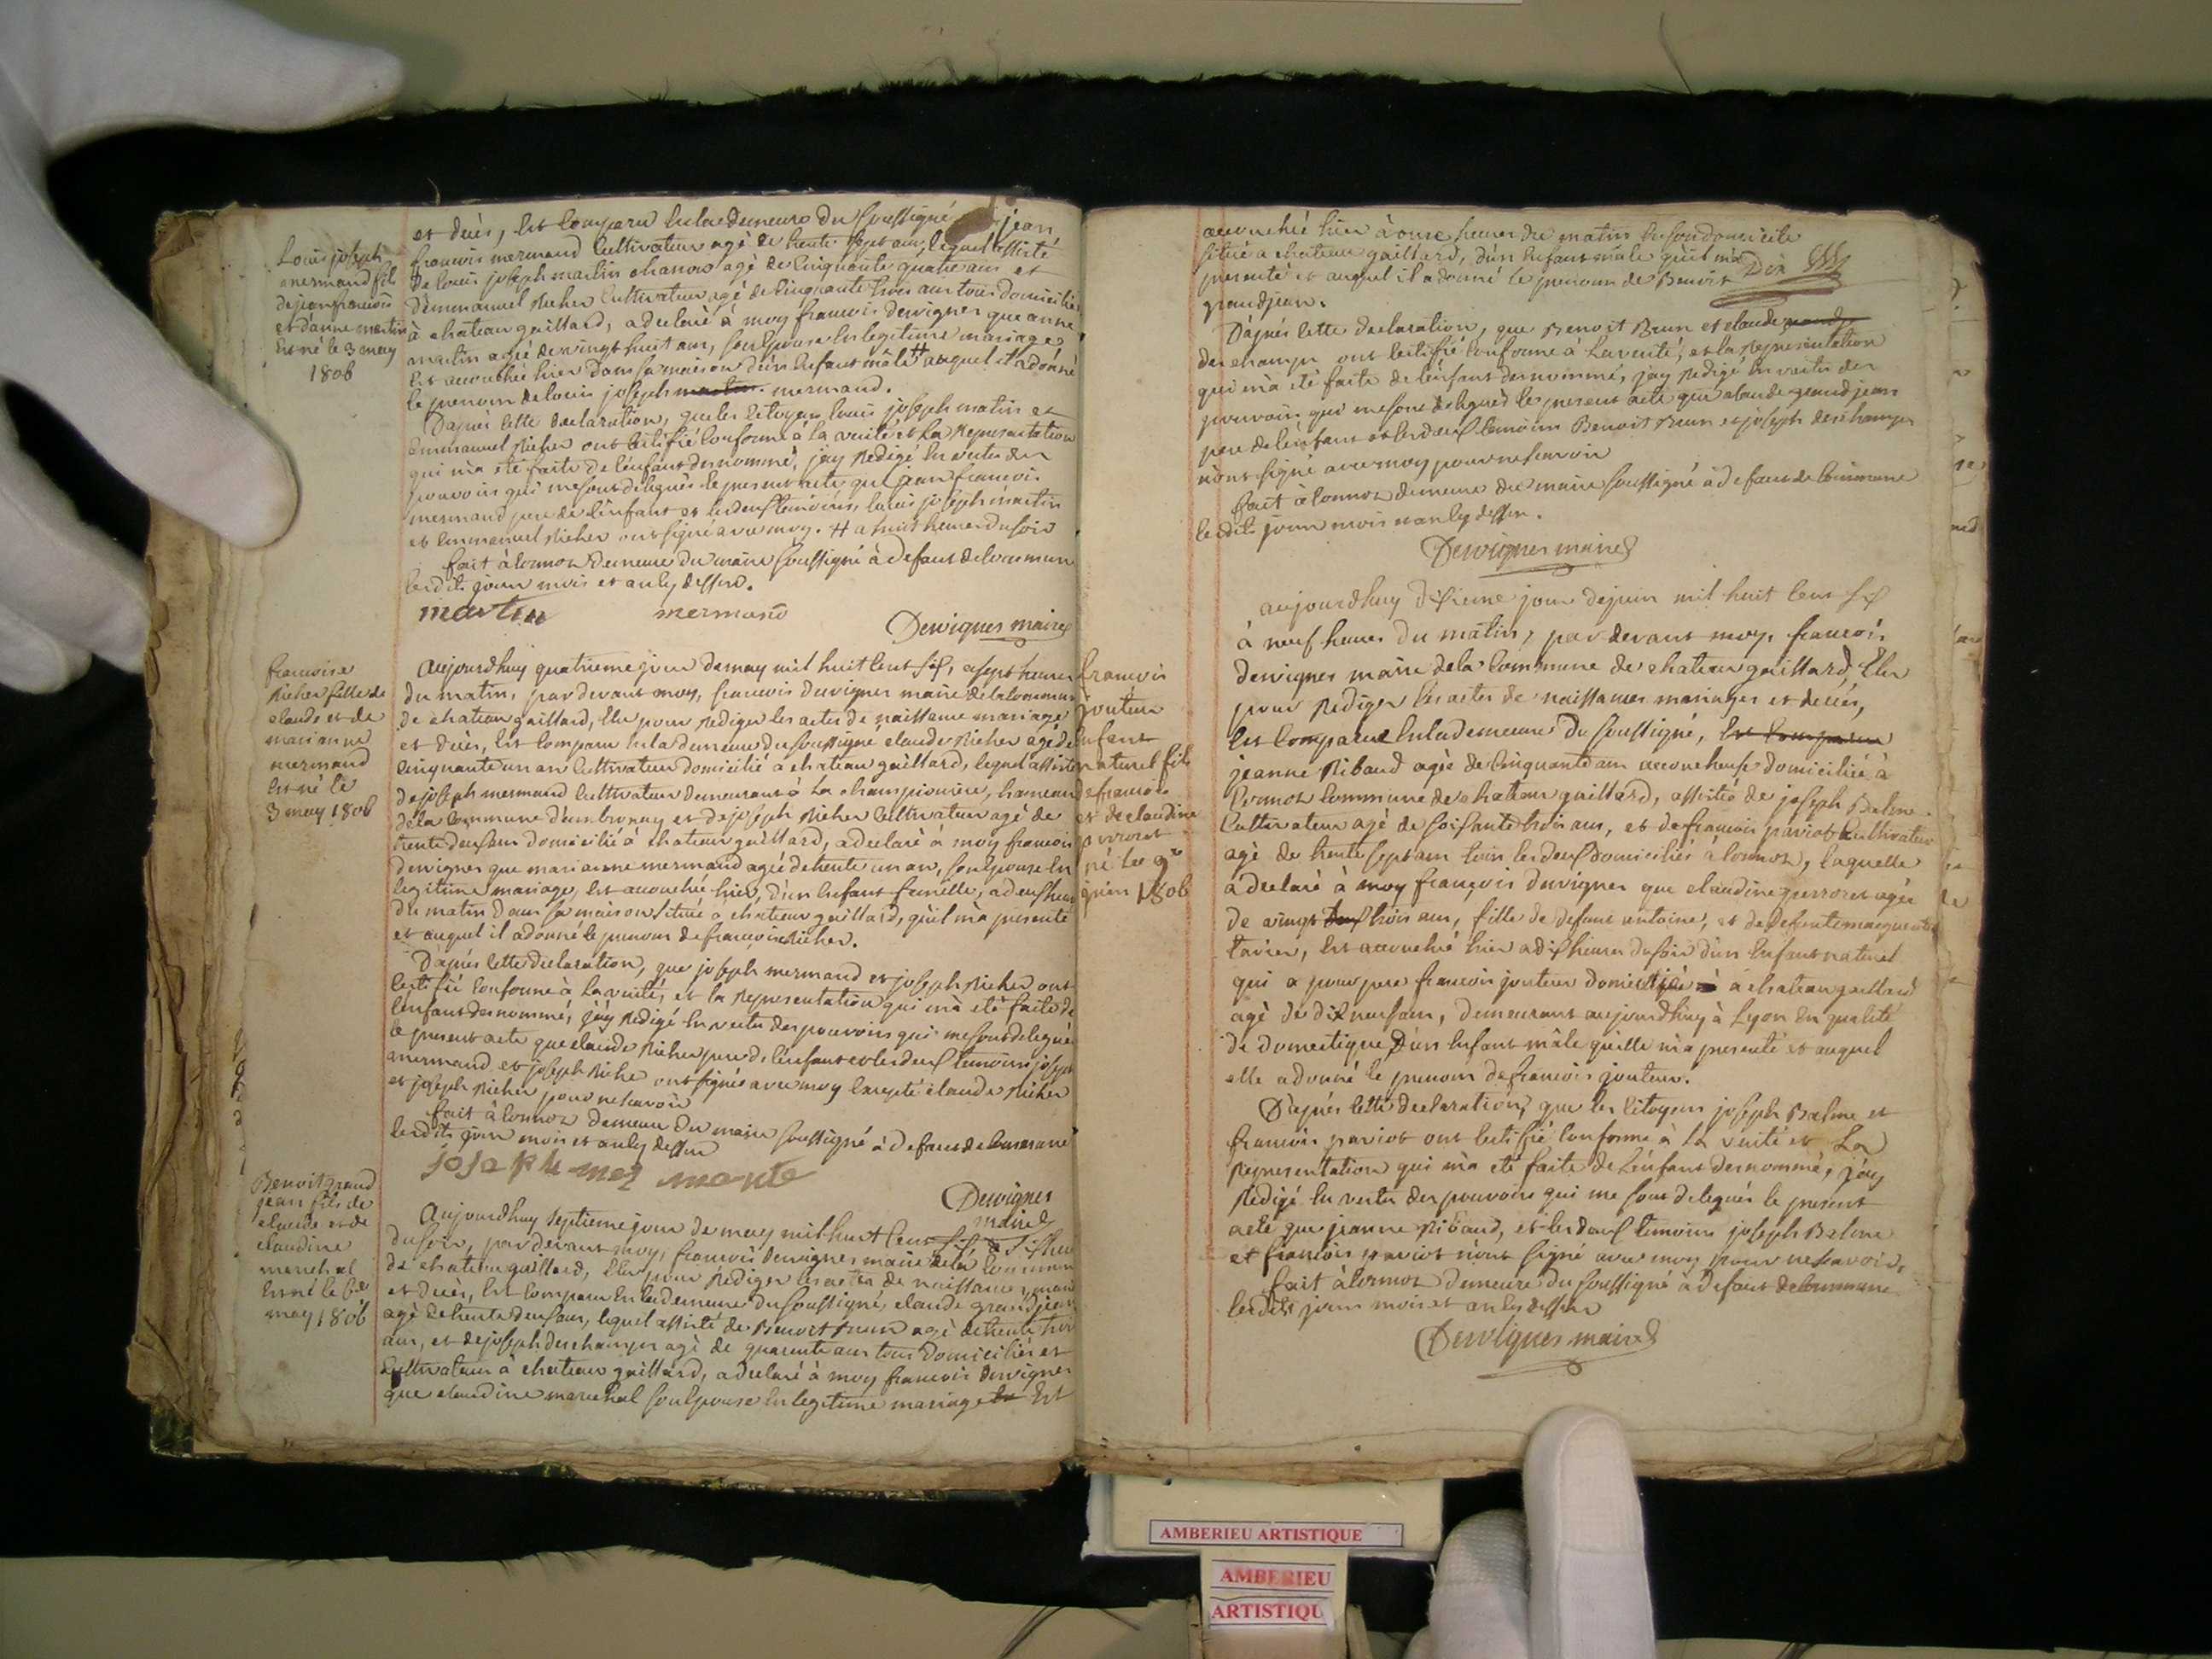 Louis joseph
mermand fils
de jean francois
et d'anne martin
Est né le 3 may
1806
et decès, Est Comparu En la demeure du soussigné jean
francois mermand Cultivateur agé de trente sept ans, lequel assisté
de louis joseph martin chanow agé de Cinquante quatre ans et
d'emmanuel Richer Cultivateur agé de Cinquante trois ans tous domicilié
à chateau gaillard, a declaré à moy francois Dervignes que anne
martin agée de vingt huit ans, son Epouse En legitime mariage
Est accouchée hier dans sa maison d'un Enfant mâle # auquel il a donné
le prenom de louis joseph martin mermand.
D'après Cette declaration, que les Citoyens louis joseph matin et
emmanuel Richer ont Certifié Conforme à la verité et la Representation
qui m'a été faite de l'enfant denommé, j'ay Redigé En vertu des
pouvoirs qui me sont delegués le present acte que jean francois
mermand pere de l'enfant et les deux temoins, louis joseph martin
et emmanuel Richer ont signé avec moy. # a huit heures du soir
fait à Cormoz demeure du maire soussigné à defaut de Commune
lesdits jour mois et an Cy dessus.
martin mermand
Dervignes maire
francoise
Richer fille de
claude et de
marianne
mermand
Est né le
3 may 1806
Aujourdhuy quatrieme jour de may mil huit Cent six, a sept heures
du matin, par devant moy, francois Dervignes maire de la Commune
de chateau gaillard, Elu pour Rediger les actes de naissance mariage
et decès, Est Comparu En la demeure du soussigné claude Richer agé de
Cinquante un an Cultivateur domicilié a chateau gaillard, lequel assisté
de joseph mermand Cultivateur demeurant à La championiere, hameau
de la Commune d'ambronay et de joseph Richer Cultivateur agé de
trente deux ans domicilié à chateau gaillard, a declaré à moy francois
Dervignes que marianne mermand agée de trente un an, son Epouse En
legitime mariage, Est accouchée hier, d'un Enfant femelle, a deux heures
du matin dans sa maison située a chateau gaillard, qu'il m'a presenté
et auquel il a donné le prenom de francoise Richer.
D'après Cette declaration, que joseph mermand et joseph Richer ont
Certifié Conforme à la verité, et la Representation qui m'a été faite de
l'enfant denommé, j'ay Redigé En vertu des pouvoirs qui me sont delegué
le present acte que claude Richer pere de l'enfant et les deux temoins joseph
mermand et joseph Riche ont signés avec moy Excepté claude Richer
et joseph Richer pour ne scavoir
fait à Cormoz demeure du maire soussigné à defaut de Commune
lesdits jour mois et an Cy dessus
josaph mer mante
Dervignes
maire
Benoit grand
jean fils de
claude et de
claudine
marechal
Est né le 6
may 1806
Aujourdhuy septieme jour de may mil huit Cent six a six heures
du soir, par devant moy, francois Dervignes maire de la Commune
de chateau gaillard, Elu pour Rediger les actes de naissance, mariage
et decès, Est Comparu En la demeure du soussigné, claude grandjean
agé de trente deux ans, lequel assisté de Benoit Brun agé de trente trois
ans, et de joseph deschamps agé de quarente ans tous domiciliés et
Cultivateurs à chateau gaillard, a declaré à moy francois Dervignes
que claudine marechal son Epouse En legitime mariage Est
accouchée hier à onze heures du matin En son domicile
situé a chateau gaillard, d'un Enfant mâle qu'il m'a
presenté et auquel il a donné le prenom de Benoit Dix
grandjean.
D'après Cette declaration, que Benoit Brun et claude
deschamps ont Certifié Conforme à la verité, et la Representation
qui m'a été faite de l'enfant denommé, j'ay Redigé En vertu des
pouvoirs qui me sont delegués le present acte que claude grandjean
pere de l'enfant et les deux temoins Benoit Brun et joseph deschamps
n'ont signé avec moy pour ne scavoir
fait à Cormoz demeure du maire soussigné à defaut de Commune
lesdits jour mois et an Cy dessus.
Dervignes maire
francois
jouteur
Enfant
naturel fils
de francois
et de claudine
perroret
né le 9
juin 1806
aujourdhuy dixieme jour de juin mil huit Cent six
à neuf heures du matin, par devant moy, francois
Dervignes maire de la Commune de chateau gaillard, Elu
pour Rediger les actes de naissances mariages et decès,
Est Comparue En la demeure du soussigné, Est Comparue
jeanne Ribaud agée de Cinquante ans accoucheuse domiciliée à
Cormoz Commune de chateau gaillard, assistée de joseph Balme
Cultivateur agé de soixante trois ans, et de francois pariot Cultivateur
agé de trente sept ans tous les deux domiciliés à Cormoz, laquelle
a declaré à moy françois Dervignes que claudine perroret agée
de vingt deux trois ans, fille de defunt antoine, et de defunte marguerite
tavier, Est accouchée hier a dix heures du soir d'un Enfant naturel
qui a pour pere francois jouteur domicilié à chateau gaillard
agé de dix neuf ans, demeurant aujourdhuy à Lyon En qualité
de domestique D'un Enfant mâle qu'elle m'a presenté et auquel
elle a donné le prenom de francois jouteur.
D'après Cette declaration, que les Citoyens joseph Balme et
francois pariot ont Certifié Conforme à la verité et La
Representation qui m'a été faite de L'enfant denommé, j'ay
Redigé En vertu des pouvoirs qui me sont delegués le present
acte que jeanne Ribaud, et les deux temoins joseph Balme
et francois pariot n'ont signé avec moy pour ne scavoir,
fait à Cormoz demeure du soussigné a defaut de Commune
lesdits jours mois et an Cy dessus
Dervignes maire
AMBERIEU ARTISTIQUE
AMBERIEU
ARTISTIQU